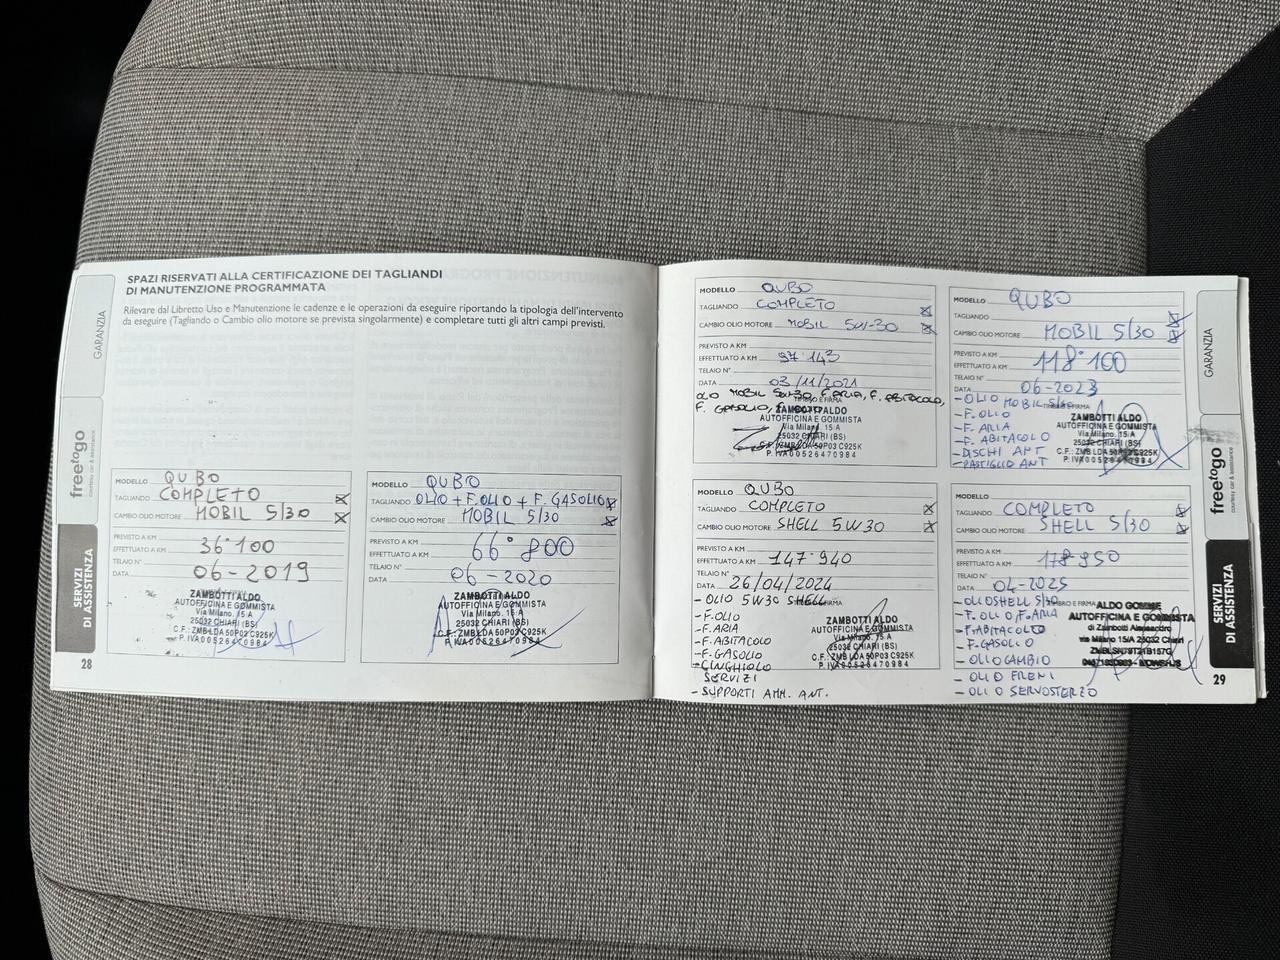 SPAZI RISERVATI ALLA CERTIFICAZIONE DEI TAGLIANDI
DI MANUTENZIONE PROGRAMMATA
Rilevare dal Libretto Uso e Manutenzione le cadenze e le operazioni da eseguire riportando la tipologia dell'intervento
da eseguire (Tagliando o Cambio olio motore se prevista singolarmente) e completare tutti gli altri campi previsti.
GARANZIA
freetogo
courtesy car & assistance
SERVIZI
DI ASSISTENZA
MODELLO QUBO
TAGLIANDO COMPLETO
CAMBIO OLIO MOTORE MOBIL 5/30
PREVISTO A KM
EFFETTUATO A KM 36°100
TELAIO N°
DATA 06-2019
ZAMBOTTI ALDO
AUTOFFICINA E GOMMISTA
Via Milano, 15-A
25032 CHIARI (BS)
C.F.: ZMB LDA 50P03 C925K
P. IVA 00526470984
28
MODELLO QUBO
TAGLIANDO OLIO + F.OLIO + F. GASOLIO
CAMBIO OLIO MOTORE MOBIL 5/30
PREVISTO A KM
EFFETTUATO A KM 66°800
TELAIO N°
DATA 06-2020
ZAMBOTTI ALDO
AUTOFFICINA E GOMMISTA
Via Milano, 15-A
25032 CHIARI (BS)
C.F.: ZMB LDA 50P03 C925K
P. IVA 00526470984
MODELLO QUBO
TAGLIANDO COMPLETO
CAMBIO OLIO MOTORE MOBIL 5W-30
PREVISTO A KM
EFFETTUATO A KM 97°143
TELAIO N°
DATA 03/11/2021
OLIO MOBIL 5W30, F.ARIA, F. ABITACOLO,
F. GASOLIO,
ZAMBOTTI ALDO
AUTOFFICINA E GOMMISTA
Via Milano, 15/A
25032 CHIARI (BS)
C.F.: ZMB LDA 50P03 C925K
P. IVA 00526470984
MODELLO QUBO
TAGLIANDO
CAMBIO OLIO MOTORE MOBIL 5/30
PREVISTO A KM
EFFETTUATO A KM 118°100
TELAIO N°
DATA 06-2023
- OLIO MOBIL 5/30
- F. OLIO
- F. ARIA
- F. ABITACOLO
- DISCHI ANT
- PASTIGLIE ANT
ZAMBOTTI ALDO
AUTOFFICINA E GOMMISTA
Via Milano, 15/A
25032 CHIARI (BS)
C.F.: ZMB LDA 50P03 C925K
P. IVA 00526470984
MODELLO QUBO
TAGLIANDO COMPLETO
CAMBIO OLIO MOTORE SHELL 5W30
PREVISTO A KM
EFFETTUATO A KM 147°940
TELAIO N°
DATA 26/04/2024
- OLIO 5W30 SHELL
- F.OLIO
- F.ARIA
- F.ABITACOLO
- F.GASOLIO
- CINGHIOLO
SERVIZI
- SUPPORTI AMM. ANT.
ZAMBOTTI ALDO
AUTOFFICINA E GOMMISTA
Via Milano, 15 A
25032 CHIARI (BS)
C.F.: ZMB LDA 50P03 C925K
P. IVA 00526470984
MODELLO
TAGLIANDO COMPLETO
CAMBIO OLIO MOTORE SHELL 5/30
PREVISTO A KM
EFFETTUATO A KM
TELAIO N°
DATA 04-2025
- OLIO SHELL 5/30
- F. OLIO / F. ARIA
- F. ABITACOLO
- F. GASOLIO
- OLIO CAMBIO
- OLIO FRENI
- OLIO SERVOSTERZO
ALDO GOMME
AUTOFFICINA E GOMMISTA
di Zambotti Alessandro
via Milano 15/A 25032 Chiari
GARANZIA
freetogo
courtesy car & assistance
SERVIZI
DI ASSISTENZA
29